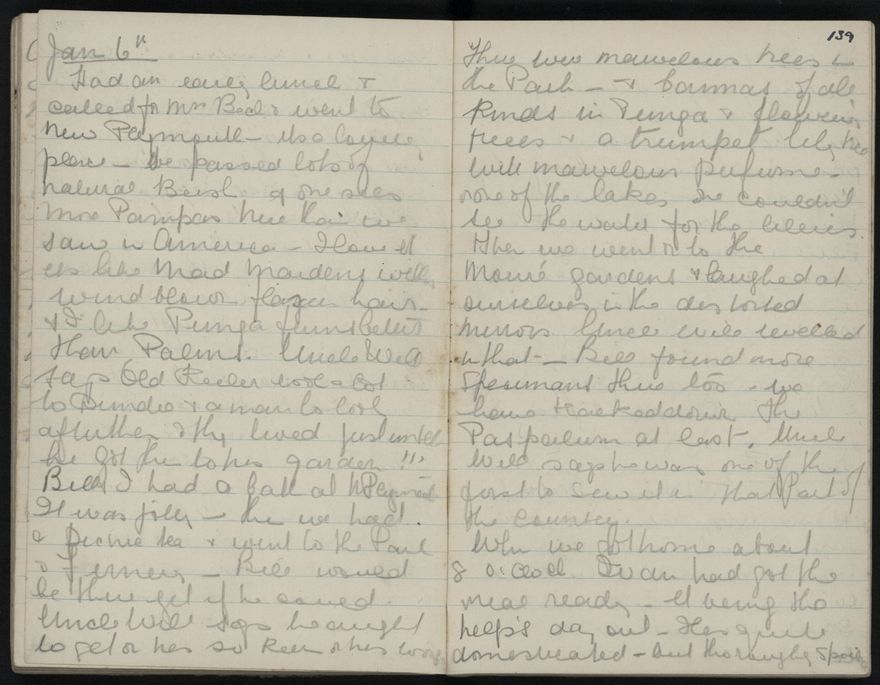 Jan 6th
Had an early lunch &
called for Mrs Beck & went to
New Plymouth - its a lovely
place - we passed lots of
natural Bush & one sees
more Pampas here than we
saw in America - I love it
its like Mad Maidens with
wind blown hair -
& I like Punga ferns better
than Palms. Uncle Will
says Old took a lot
to Dundee & a man to look
after them & they lived just until
he got them to his garden !!!
Bill & I had a bath at N Plymouth
It was jolly - then we had
a picnic tea & went to the Park
& Fernery - Bill would
be there yet if he could.
Uncle Will says he ought
to get on hes so keen on his work
139
They were marvelous trees in
the Park - & of all
kinds in Punga & flowering
trees & a trumpet lily tree
with marvelous perfume -
one of the lakes one couldn't
see the water for the lilies.
Then we went on to the
gardens & laughed at
ourselves in the distorted
mirrors Uncle Will revelled
in that - Bill found more
specimens there too - we
have tracked down the
Paspalum at last. Uncle
Will says he was one of the
first to sow it in that Part of
the Country.
When we got home about
8 o:clock Ivan had got the
meal ready - it being the
help's day out - Hes quite
domesticated - but thoroughly spoilt